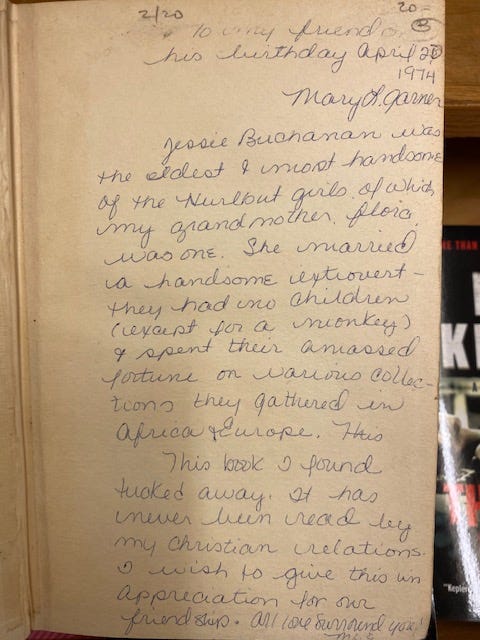 2/20
20-
③
To my friend on
his birthday April 20
1974
Mary L. Garner
Jessie Buchanan was
the oldest & most handsome
of the Hurlbut girls of which
my grandmother, Flora,
was one. She married
a handsome extrovert -
they had no children
(except for a monkey)
& spent their amassed
fortune on various collec-
tions they gathered in
Africa & Europe. This
This book I found
tucked away. It has
never been read by
my Christian relations.
I wish to give this in
appreciation for our
friendship. All love surround you!
RE THAN
K
"Kepler